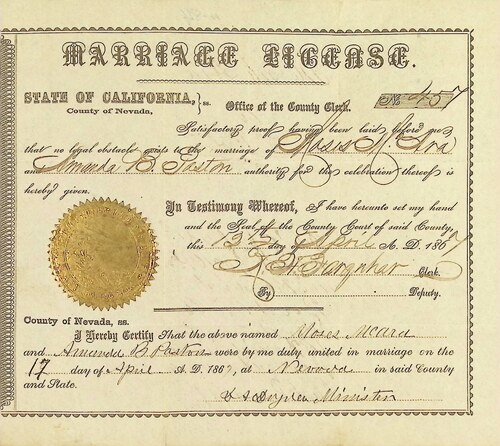 MARRIAGE LICENSE.
STATE OF CALIFORNIA, } ss. Office of the County Clerk. No. 457
County of Nevada,
Satisfactory proof having been laid before me
that no legal obstacle exists to the marriage of Moses
and Amanda B. Paston authority for the celebration thereof is
hereby given.
In Testimony Whereof, I have hereunto set my hand
and the Seal of the County Court of said County,
this 13th day of April A. D. 1867
Farquhar Clerk.
By Deputy.
County of Nevada, ss.
I Hereby Certify That the above named Moses
and Amanda B Paston were by me duly united in marriage on the
17 day of April A. D. 1867, at Nevada in said County
and State.
Minister